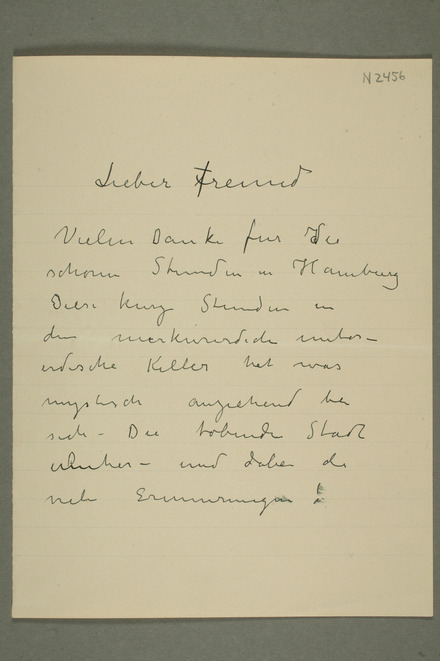 N2456
Lieber Freund
Vielen Danke für die
schönen Stunden in Hamburg
Diese kurz Stunden in
den merkwürdide unter-
irdische Keller het was
mystisch anziehend bei
sich - Die tobende Stadt
- und dabei de
viele Erinnerungen!